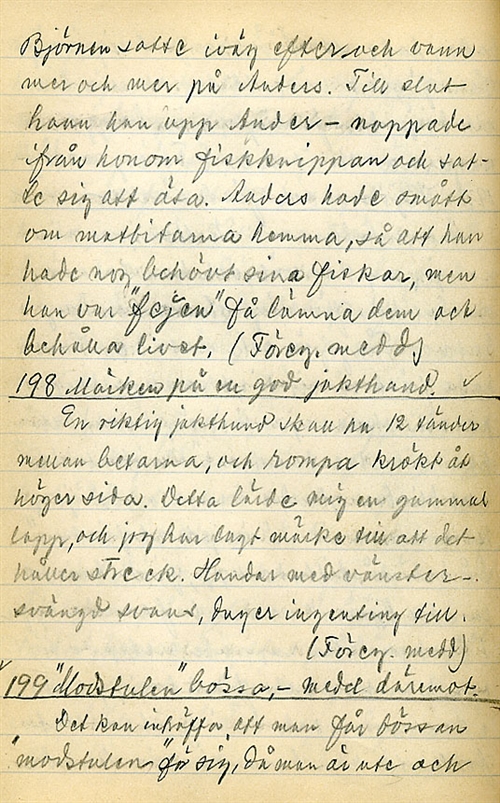 Björnen satte iväg efter och vann
mer och mer på Anders. Till slut
hann han upp Ander – nappade
ifrån honom fiskknippan och sat-
te sig att äta. Anders hade smått
om matbitarna hemma, så att han
hade nog behövt sina fiskar, men
han var "fejen" få lämna dem och
behålla livet. (Föreg. medd)
198 Märken på en god jakthund. ✓
En riktig jakthund skall ha 12 tänder
mellan betarna, och rompa krökt åt
höger sida. Detta lärde mig en gammal
lapp, och jag har lagt märke till att det
håller streck. Hundar med vänster-
svängd svans, duger ingenting till.
(Föreg. medd)
✓ 199 "Modstulen" bössa, – medel däremot.
Det kan inträffa, att man får bössan
"modstulen" för sig, då man är ute och